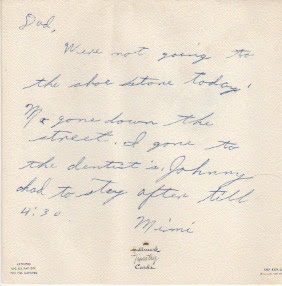 Dad,
We're not going to
the shoe store today.
gone down the
street. I gone to
the dentist's. Johnny
had to stay after till
4:30
Mimi
Hallmark
Cards